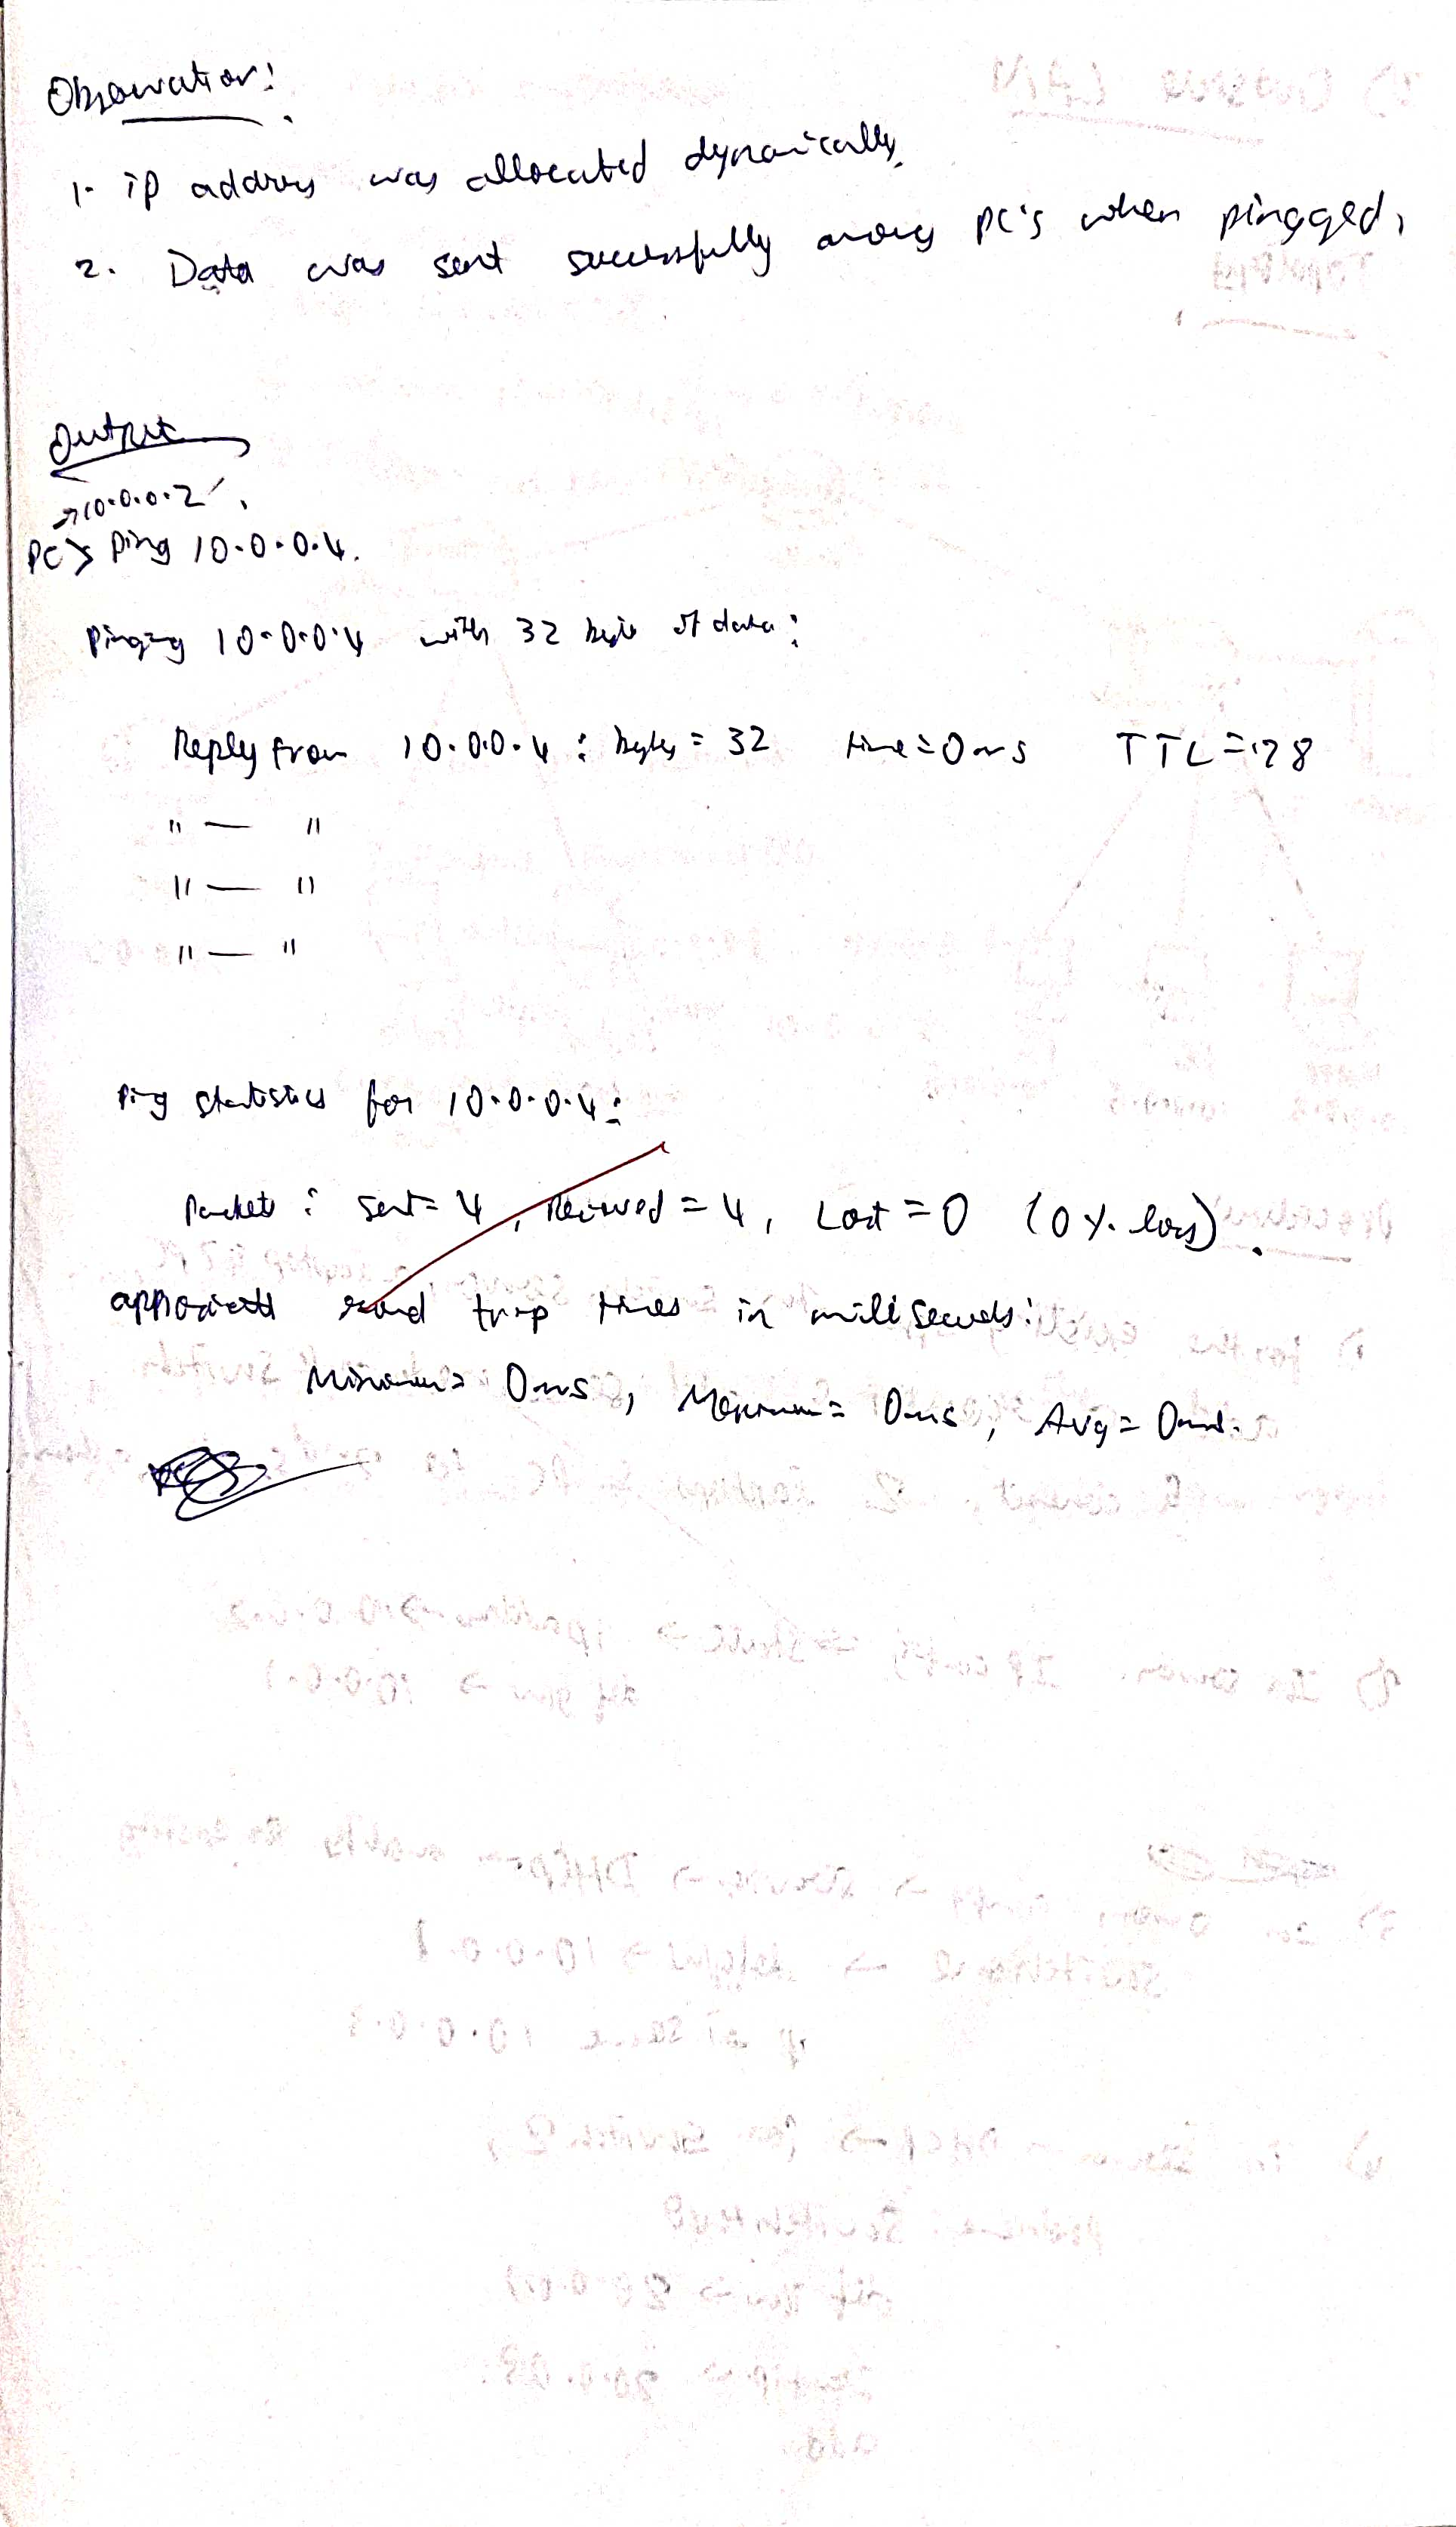 Observation:
1. ip address was allocated dynamically.
2. Data was sent successfully among PC's when pingged,
Output
→10.0.0.2
PC> Ping 10.0.0.4.
Pinging 10.0.0.4 with 32 byte of data:
Reply from 10.0.0.4 : bytes = 32 time=0ms TTL=128
" — "
" — "
" — "
Ping statistics for 10.0.0.4:
Packets : Sent= 4, Received = 4, Lost = 0 (0% loss).
round trip times in milliseconds:
Minimum= 0ms, Maximum= 0ms, Avg= 0ms.